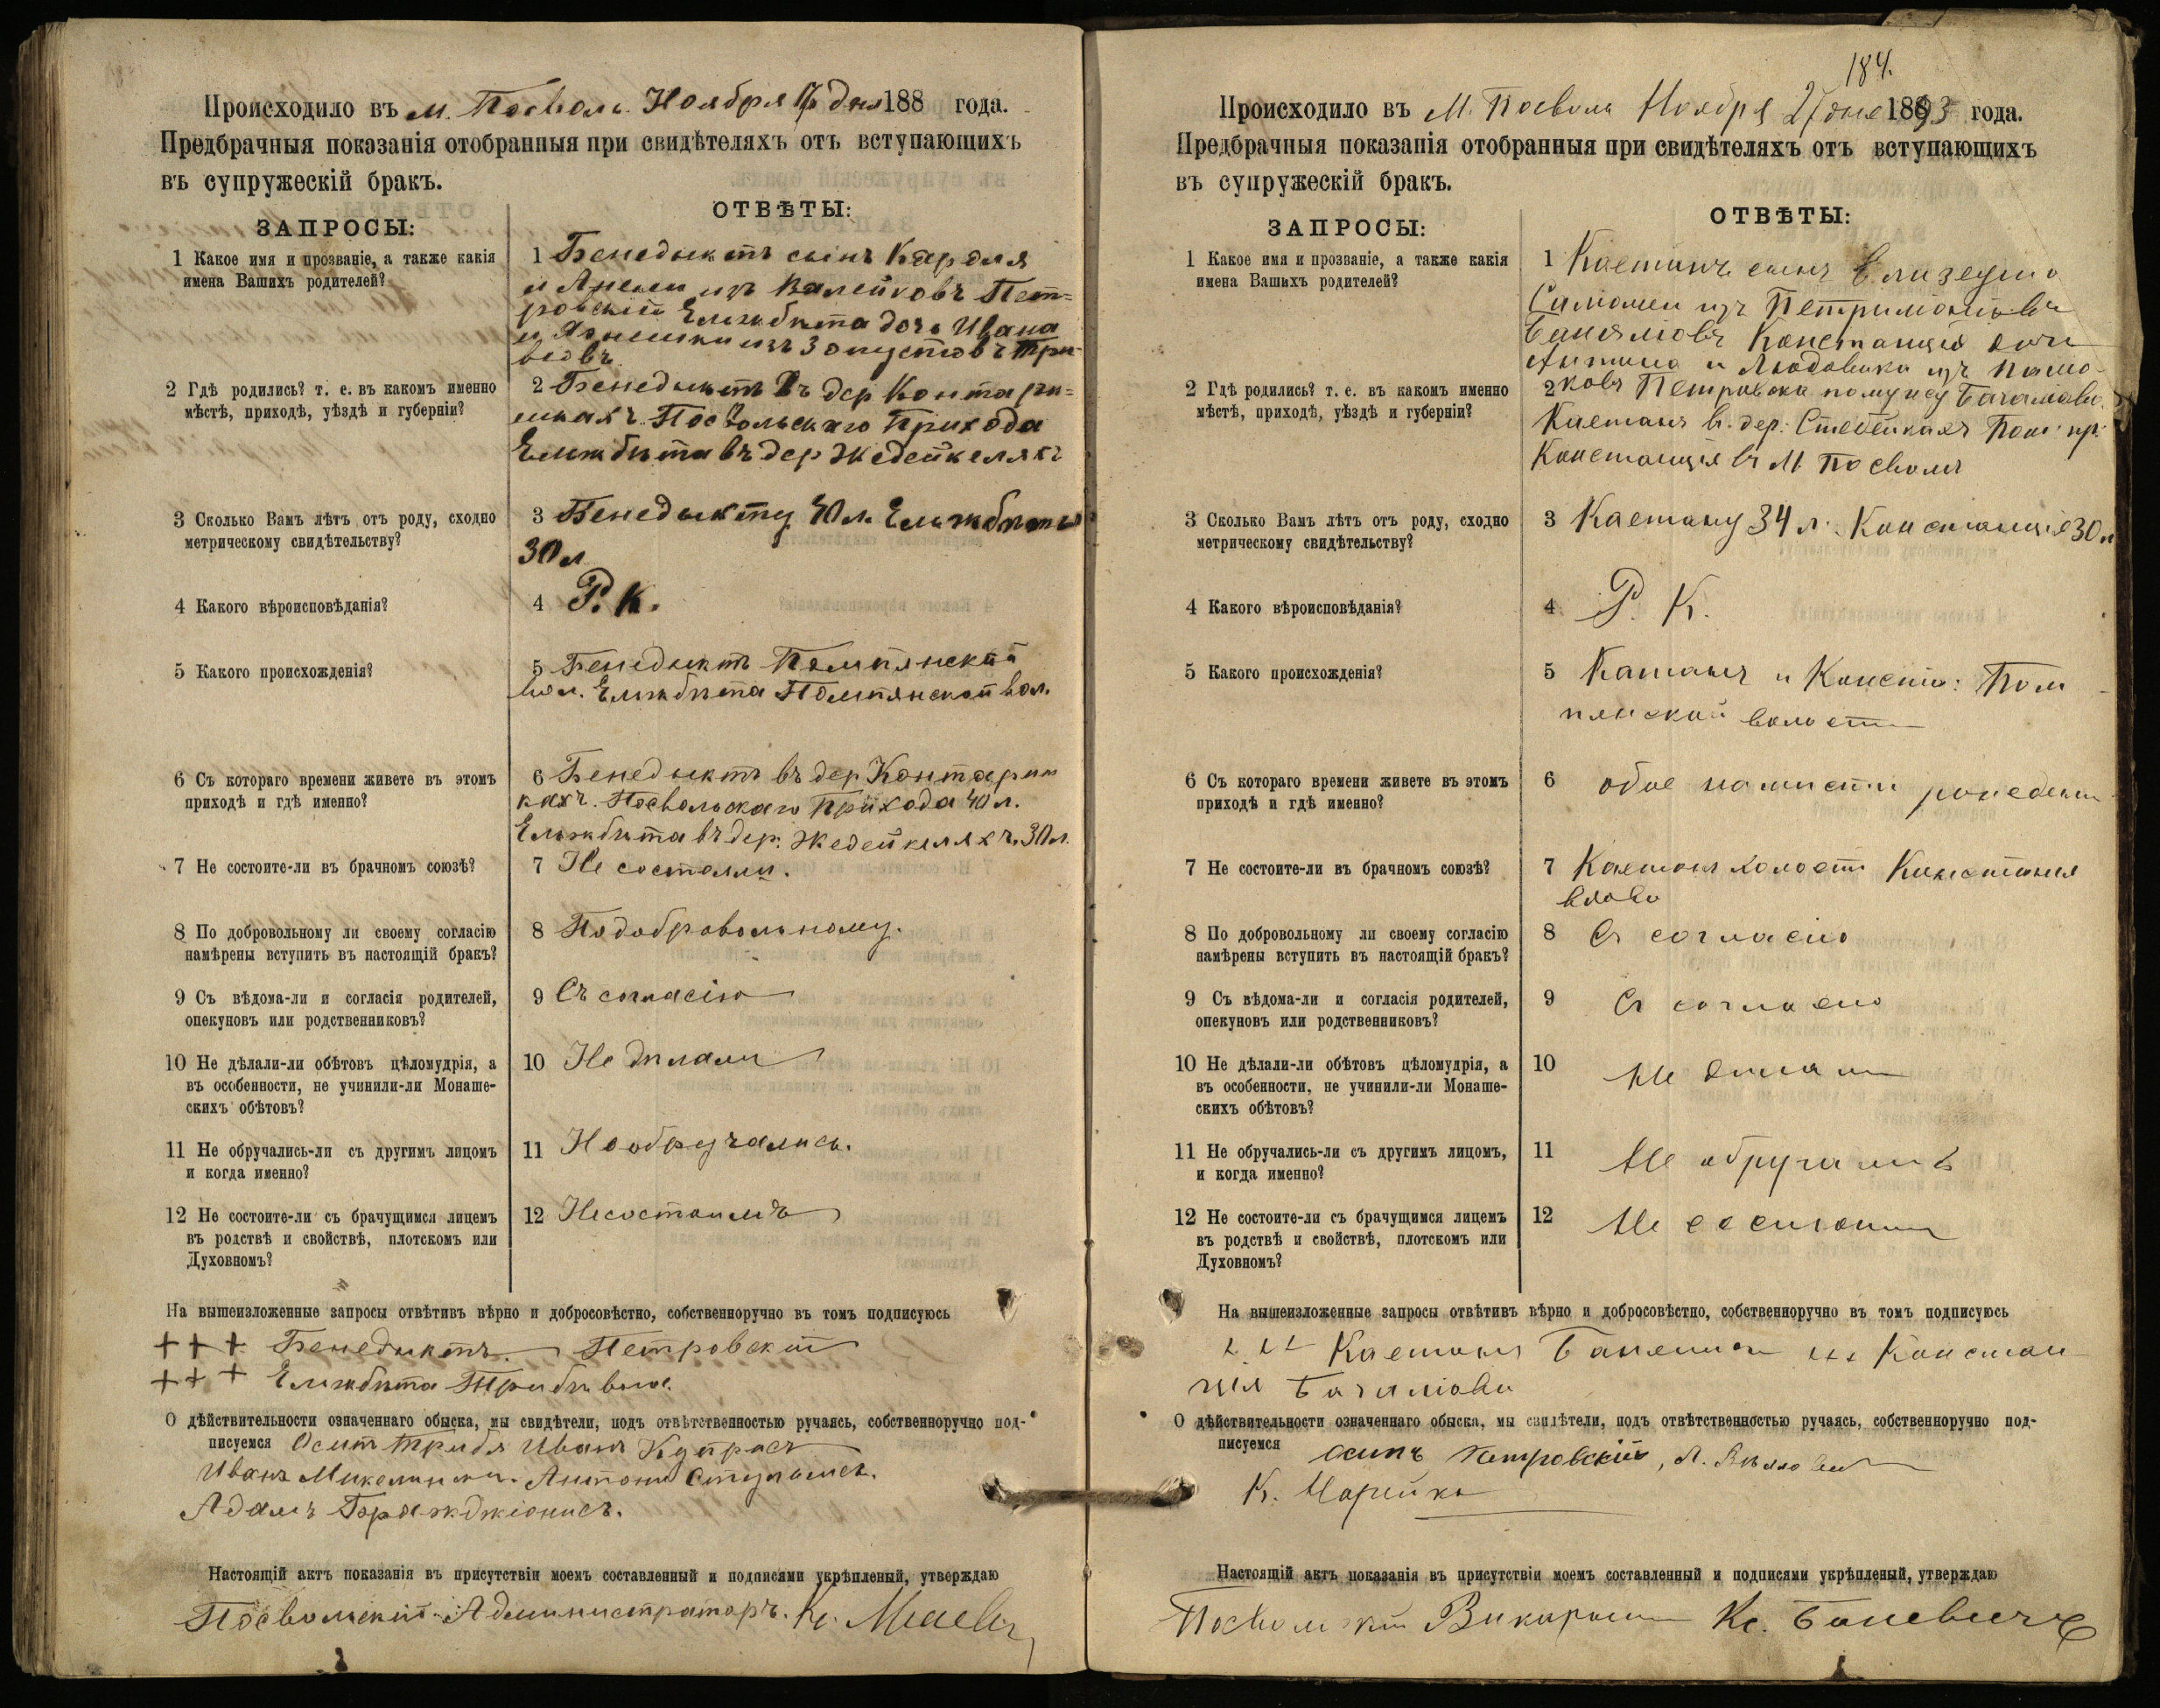 Происходило въ м. Посволь. Ноября 17 дня 188 года.
Предбрачныя показанія отобранныя при свидѣтеляхъ отъ вступающихъ
въ супружескій бракъ.
ЗАПРОСЫ:
ОТВѢТЫ:
1 Какое имя и прозваніе, а также какія
имена Вашихъ родителей?
1 Бенедыктъ сынъ Кароля
и Анели изъ Валейковъ Пет=
ровскій Ельжбѣта дочь Ивана
и Агнешки изъ
2 Гдѣ родились? т. е. въ какомъ именно
мѣстѣ, приходѣ, уѣздѣ и губерніи?
2 Бенедыктъ въ дер Контари=
шкахъ Посвольскаго Прихода
Ельжбѣта въ дер Жедейкеляхъ
3 Сколько Вамъ лѣтъ отъ роду, сходно
метрическому свидѣтельству?
3 Бенедыкту 40 л. Ельжбѣты
30 л
4 Какого вѣроисповѣданія?
4 Р. К.
5 Какого происхожденія?
5 Бенедыктъ Помпянской
вол. Ельжбѣта Помпянской вол.
6 Съ котораго времени живете въ этомъ
приходѣ и гдѣ именно?
6 Бенедыктъ въ дер Контариш
кахъ. Посвольскаго Прихода 40 л.
Ельжбѣта въ дер. Жедейкеляхъ. 30 л.
7 Не состоите-ли въ брачномъ союзѣ?
7 Не состояли.
8 По добровольному ли своему согласію
намѣрены вступить въ настоящій бракъ?
8 Подобровольному.
9 Съ вѣдома-ли и согласія родителей,
опекуновъ или родственниковъ?
9 Съ согласію
10 Не дѣлали-ли обѣтовъ цѣломудрія, а
въ особенности, не учинили-ли Монаше-
скихъ обѣтовъ?
10 Не дѣлали
11 Не обручались-ли съ другимъ лицомъ
и когда именно?
11 Не обручались.
12 Не состоите-ли съ брачущимся лицемъ
въ родствѣ и свойствѣ, плотскомъ или
Духовномъ?
12
На вышеизложенные запросы отвѣтивъ вѣрно и добросовѣстно, собственноручно въ томъ подписуюсь
+++ Бенедыктъ. Петровскій
+++ Ельжбѣта
О дѣйствительности означеннаго обыска, мы свидѣтели, подъ отвѣтственностью ручаясь, собственноручно под-
писуемся Осипъ Иванъ Купрасъ
Иванъ Антони
Адамъ
Настоящій актъ показанія въ присутствіи моемъ составленный и подписями укрѣпленый, утверждаю
Посвольскій Администраторъ. Кс.
184.
Происходило въ м. Посволь Ноября 27 дня 1893 года.
Предбрачныя показанія отобранныя при свидѣтеляхъ отъ вступающихъ
въ супружескій бракъ.
ЗАПРОСЫ:
ОТВѢТЫ:
1 Какое имя и прозваніе, а также какія
имена Вашихъ родителей?
1 Каетанъ сынъ Елизеуша
Саломеи изъ
Констанція дочь
Антона и Людовики изъ
2 Гдѣ родились? т. е. въ какомъ именно
мѣстѣ, приходѣ, уѣздѣ и губерніи?
2 ковъ Петровска по мужу
Каетанъ въ дер: Стебейкахъ Пос: пр:
Констанція въ м. Посволь
3 Сколько Вамъ лѣтъ отъ роду, сходно
метрическому свидѣтельству?
3 Каетану 34 л. Констанція 30 л
4 Какого вѣроисповѣданія?
4 Р. К.
5 Какого происхожденія?
5 Катанъ и Конста: Пом
пянской волости
6 Съ котораго времени живете въ этомъ
приходѣ и гдѣ именно?
6 обое
7 Не состоите-ли въ брачномъ союзѣ?
7 Каетанъ холостъ Констанія
вдова
8 По добровольному ли своему согласію
намѣрены вступить въ настоящій бракъ?
8 Съ согласію
9 Съ вѣдома-ли и согласія родителей,
опекуновъ или родственниковъ?
9 Съ согласію
10 Не дѣлали-ли обѣтовъ цѣломудрія, а
въ особенности, не учинили-ли Монаше-
скихъ обѣтовъ?
10 Не дѣлали
11 Не обручались-ли съ другимъ лицомъ,
и когда именно?
11 Не обручались
12 Не состоите-ли съ брачущимся лицемъ
въ родствѣ и свойствѣ, плотскомъ или
Духовномъ?
12 Не состоятъ
На вышеизложенные запросы отвѣтивъ вѣрно и добросовѣстно, собственноручно въ томъ подписуюсь
+++ Каетанъ +++ Констан
ція
О дѣйствительности означеннаго обыска, мы свидѣтели, подъ отвѣтственностью ручаясь, собственноручно под-
писуемся Осипъ Петровскій,
К. Марейка
Настоящій актъ показанія въ присутствіи моемъ составленный и подписями укрѣпленый, утверждаю
Посвольскій Викарный Кс. Баневичъ